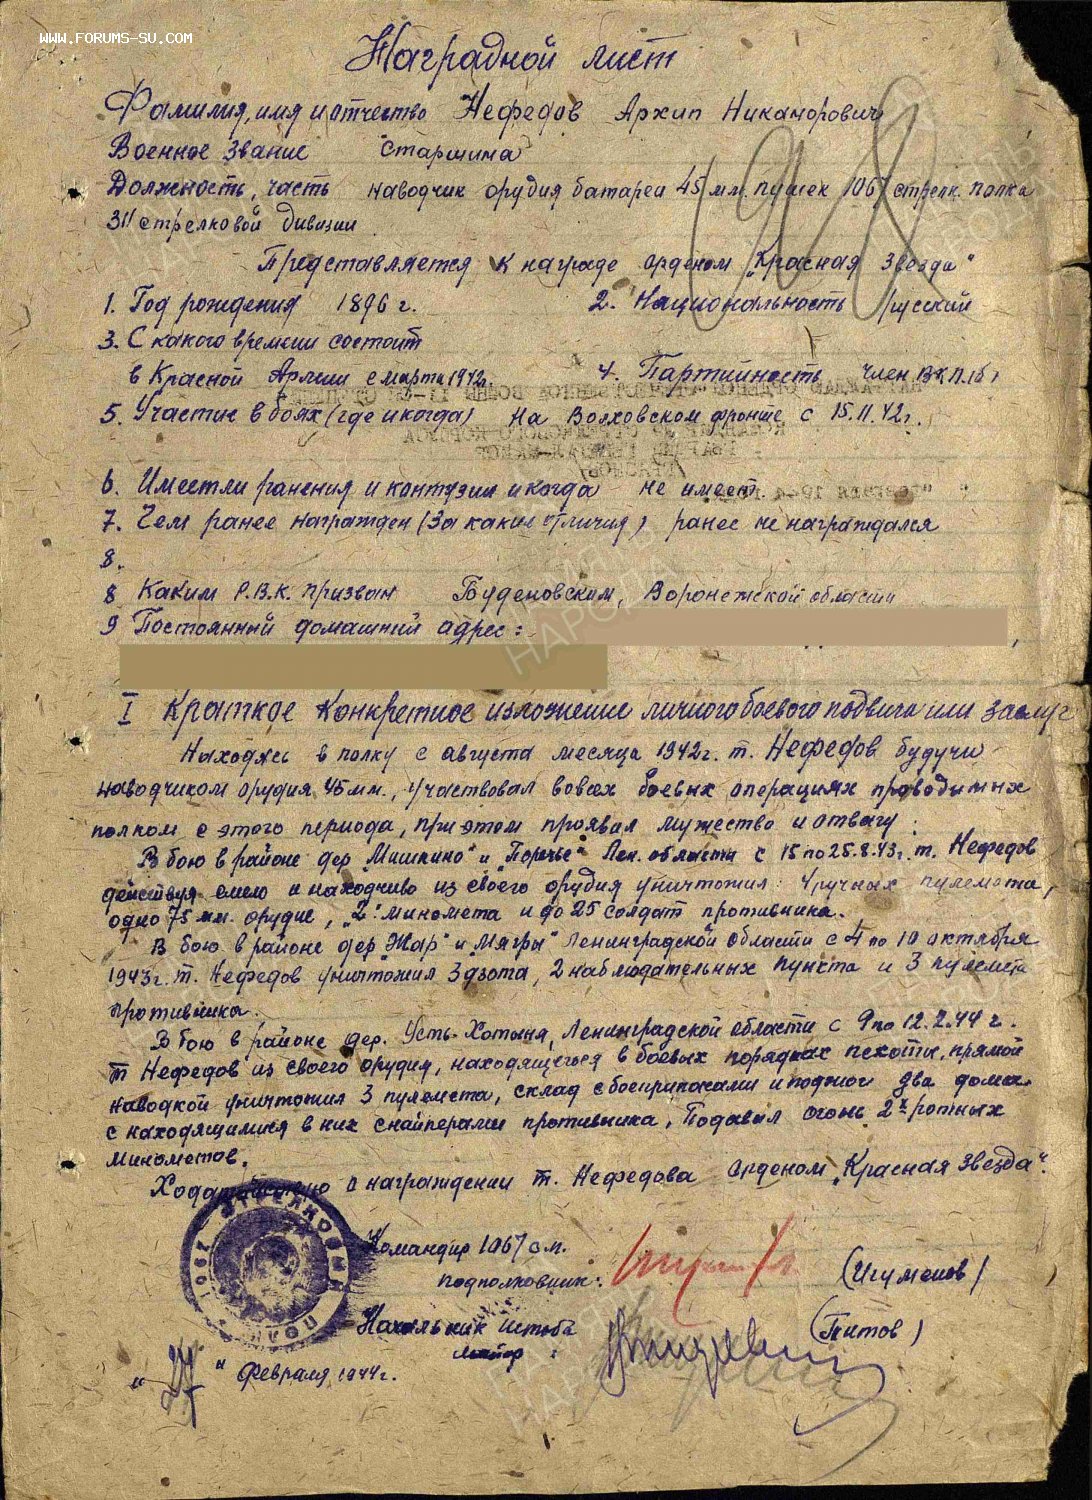 WWW.FORUMS-SU.COM
Наградной лист
Фамилия, имя и отчество Нефедов Архип Никанорович
Военное звание Старшина
Должность, часть наводчик орудия батареи 45 мм. пушек 1067 стрелк. полка
311 стрелковой дивизии
Представляется к награде орденом „Красная Звезда"
1. Год рождения 1896 г. 2. Национальность русский
3. С какого времени состоит
в Красной Армии с марта 1942г. 4. Партийность член ВКП(б)
5. Участие в боях (где и когда) На Волховском фронте с 15.11.42г.
6. Имеет ли ранения и контузии и когда не имеет.
7. Чем ранее награжден (За какие отличия) ранее не награждался
8.
8 Каким Р.В.К. призван Буденовским, Воронежской области
9 Постоянный домашний адрес:
I Краткое конкретное изложение личного боевого подвига или заслуг
Находясь в полку с августа месяца 1942г. т. Нефедов будучи
наводчиком орудия 45 мм., участвовал во всех боевых операциях проводимых
полком с этого периода, при этом проявил мужество и отвагу:
В бою в районе дер „Мишкино" и „Поречье" Лен. области с 15 по 25.8.43г. т. Нефедов
действуя смело и находчиво из своего орудия уничтожил: 4 ручных пулемета,
одно 75 мм. орудие, 2 миномета и до 25 солдат противника.
В бою в районе дер „Жар" и „Мягры" Ленинградской области с 4 по 10 октября
1943г. т. Нефедов уничтожил 3 дзота, 2 наблюдательных пункта и 3 пулемета
противника.
В бою в районе дер. Усть-Хотыня, Ленинградской области с 9 по 12.2.44 г.
т Нефедов из своего орудия, находящегося в боевых порядках пехоты, прямой
наводкой уничтожил 3 пулемета, склад с боеприпасами и поджог два дома
с находящимися в них снайперами противника, Подавил огонь 2х ротных
минометов.
Ходатайствую о награждении т. Нефедова орденом „Красная Звезда".
1067 СТРЕЛКОВЫЙ ПОЛК
Командир 1067 с.п.
подполковник: (Игуменов)
Начальник штаба
майор: (Титов)
„27" Февраля 1944г.